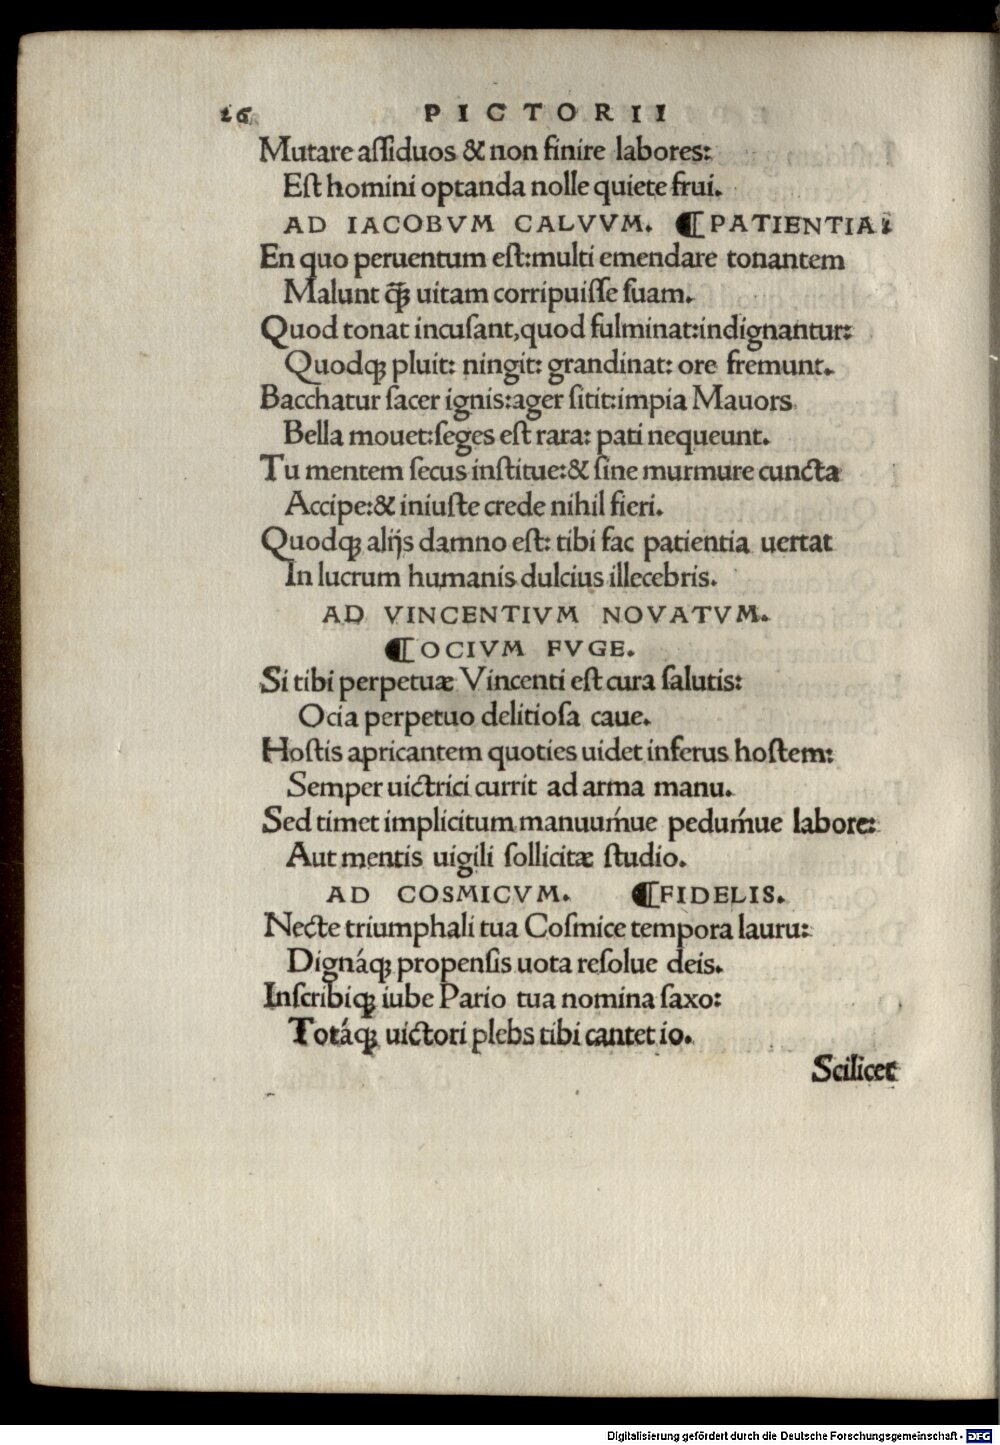 26 PICTORII
Mutare aſſiduos & non finire labores:
Eſt homini optanda nolle quiete frui.
AD IACOBVM CALVVM. ¶PATIENTIA:
En quo peruentum eſt:multi emendare tonantem
Malunt q̄ꝫ uitam corripuiſſe ſuam.
Quod tonat incuſant,quod fulminat:indignantur:
Quodqꝫ pluit: ningit: grandinat: ore fremunt.
Bacchatur ſacer ignis:ager ſitit:impia Mauors
Bella mouet:ſeges eſt rara: pati nequeunt.
Tu mentem ſecus inſtitue:& ſine murmure cuncta
Accipe:& iniuſte crede nihil fieri.
Quodqꝫ alijs damno eſt: tibi fac patientia uertat
In lucrum humanis dulcius illecebris.
AD VINCENTIVM NOVATVM.
¶OCIVM FVGE.
Si tibi perpetuæ Vincenti eſt cura ſalutis:
Ocia perpetuo delitioſa caue.
Hoſtis apricantem quoties uidet inferus hoſtem:
Semper uictrici currit ad arma manu.
Sed timet implicitum manuuḿue peduḿue labore:
Aut mentis uigili ſollicitæ ſtudio.
AD COSMICVM. ¶FIDELIS.
Necte triumphali tua Coſmice tempora lauru:
Dignáqꝫ propenſis uota reſolue deis.
Inſcribiqꝫ iube Pario tua nomina ſaxo:
Totáqꝫ uictori plebs tibi cantet io.
Scilicet
Digitalisierung gefördert durch die Deutsche Forschungsgemeinschaft - DFG